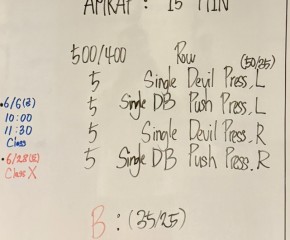 AMRAP : 15 MIN
500/400 Row
(50/35)
5 Single Devil Press, L
5 Single DB Push Press, L
5 Single Devil Press, R
5 Single DB Push Press, R
•6/6(日)
10:00
11:30
Class
•6/28(日)
Class X
B : (35/25)